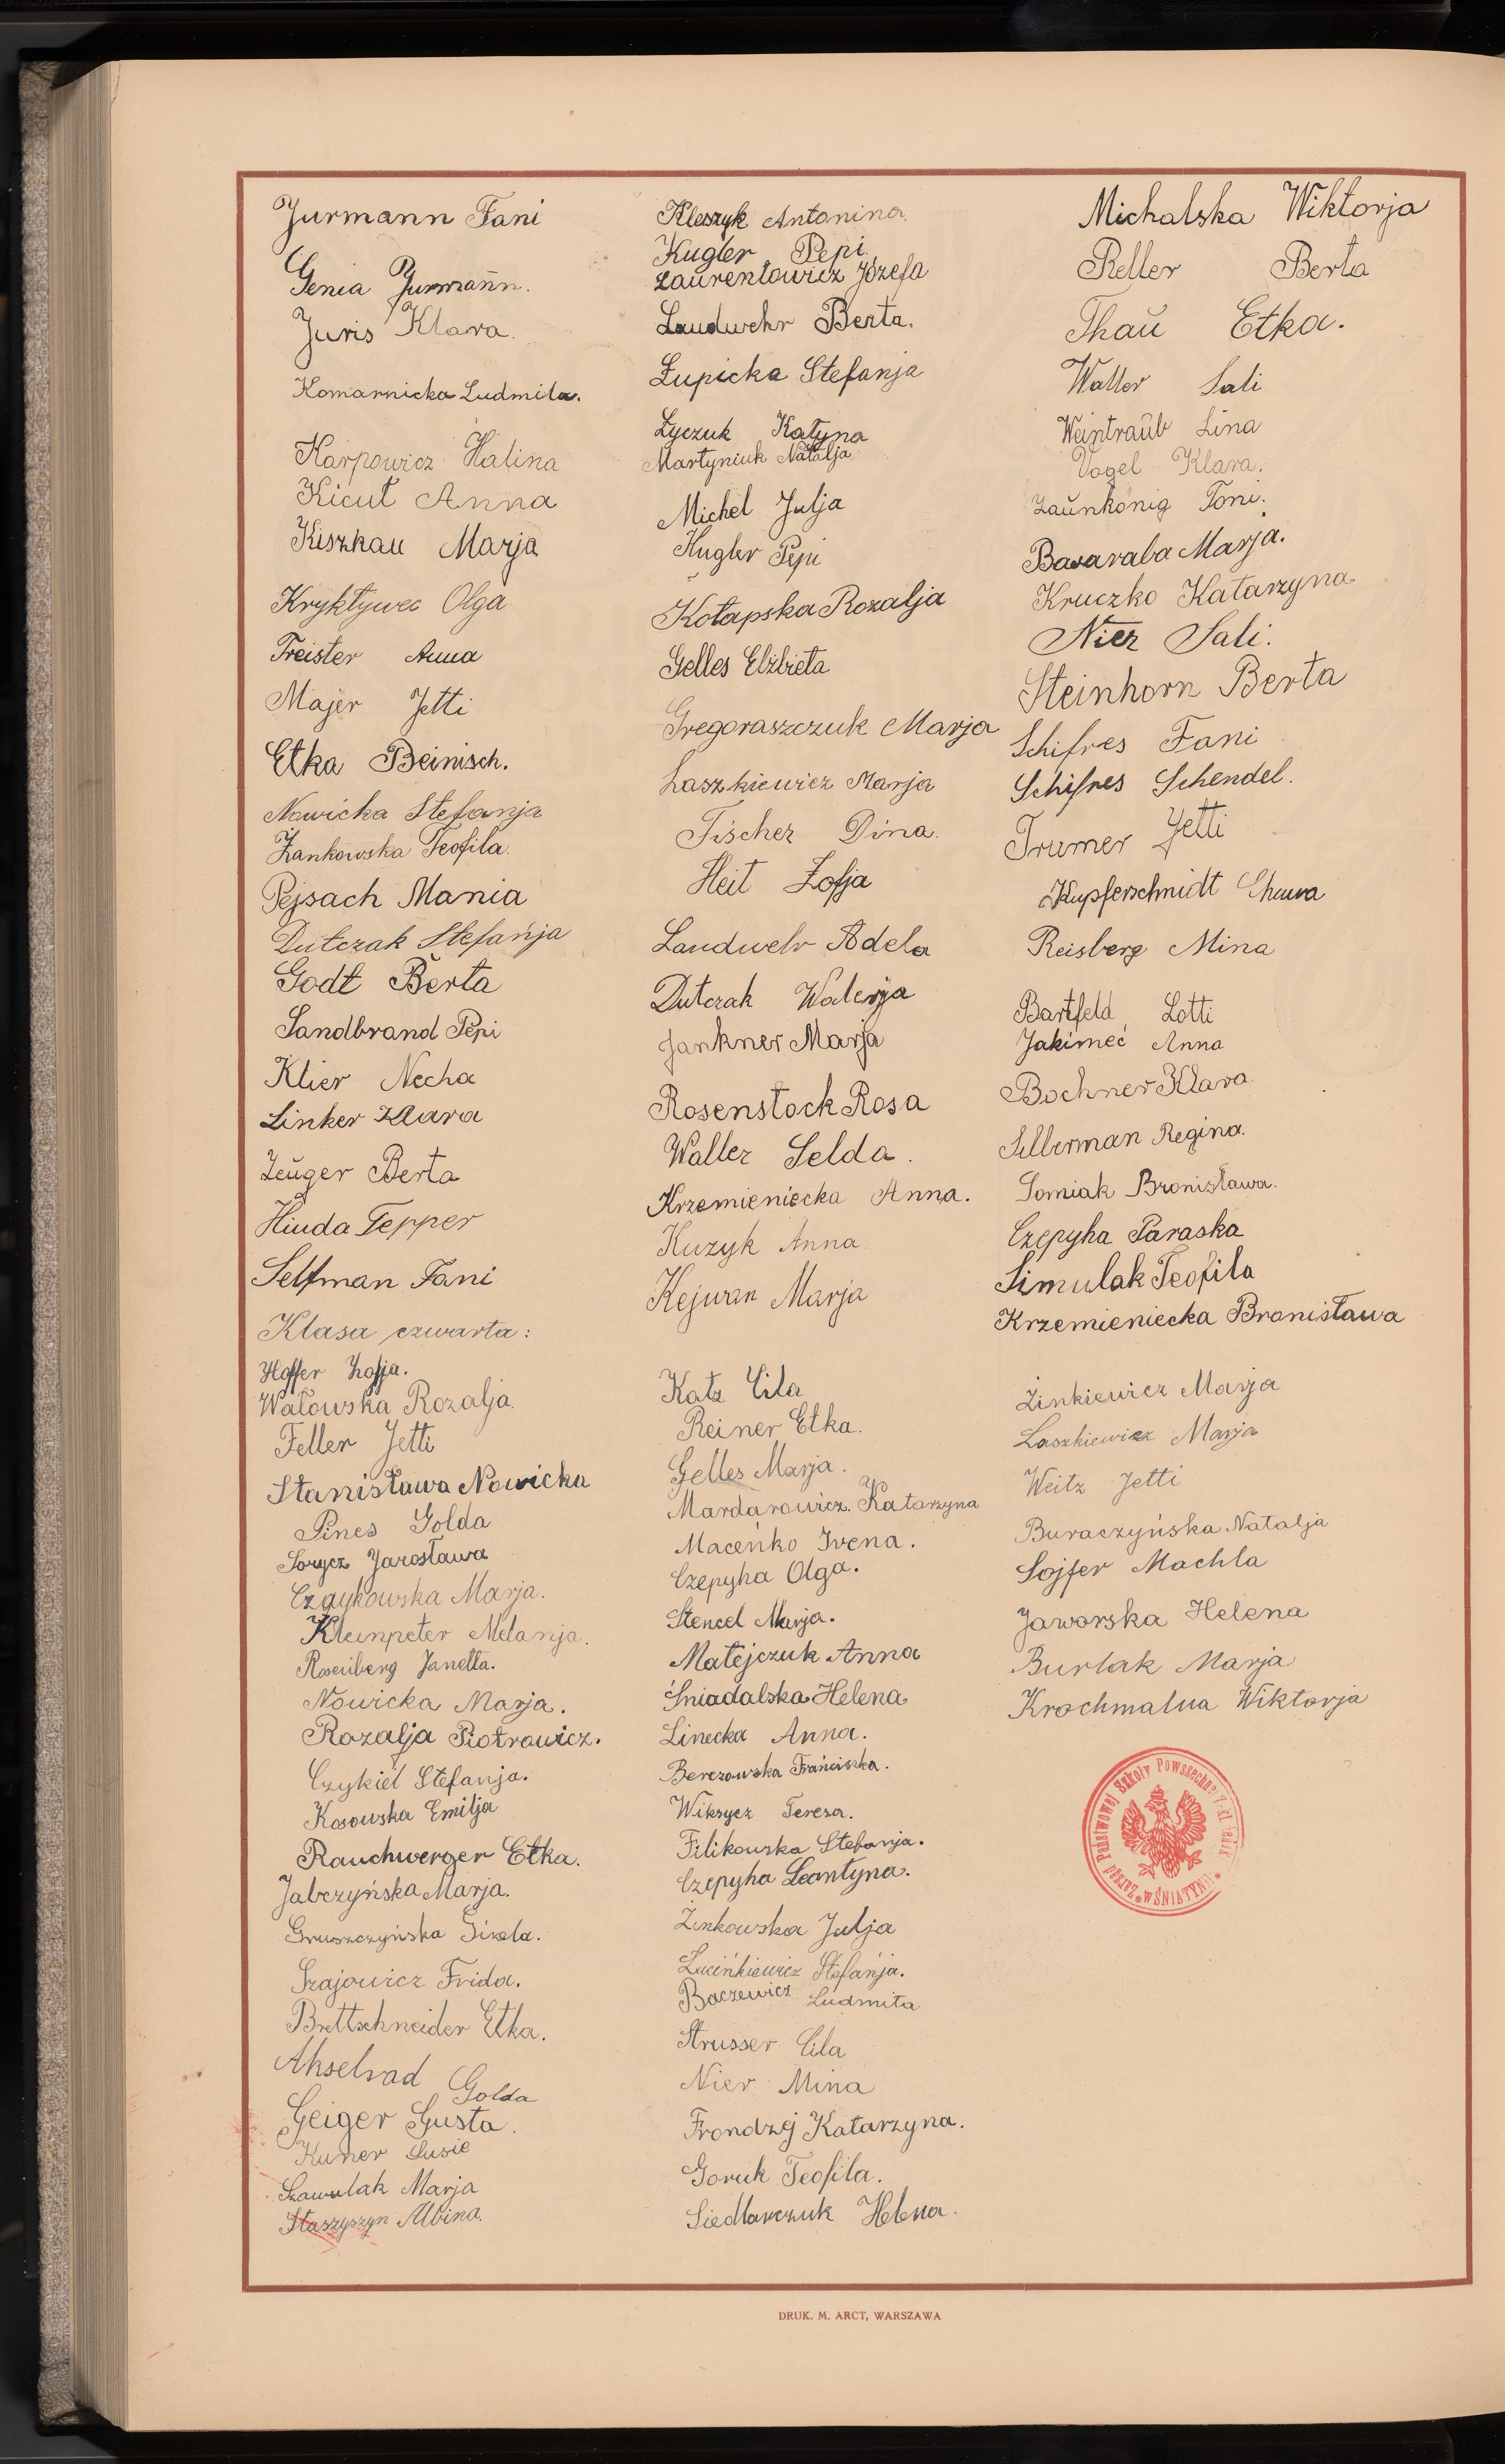 Jurmann Fani
Genia Jurmann.
Juris Klara.
Komarnicka Ludmila.
Karpowicz Halina
Kicut Anna
Kiszkau Marja
Kryktywec Olga
Treister Anna
Majer Jetti
Etka Beinisch.
Nowicka Stefanja
Żankowska Teofila.
Pejsach Mania
Dutczak Stefanja
Godt Berta
Sandbrand Pepi
Klier Necha
Linker Klara
Zeuger Berta
Hinda Tepper
Selfman Fani
Kleszyk Antonina.
Kugler Pepi.
Laurentowicz Józefa
Laudwehr Berta.
Łupicka Stefanja
Łyczuk Katyna
Martyniuk Natalja
Michel Julja
Kugler Pepi
Kotapska Rozalja
Gelles Elżbieta
Gregoraszczuk Marja
Laszkiewicz Marja
Fischer Dina.
Heit Zofja
Landwehr Adela
Dutczak Walerja
Jankner Marja
Rosenstock Rosa
Waller Selda.
Krzemieniecka Anna.
Kuzyk Anna
Kejwan Marja
Michalska Wiktorja
Reller Berta
Thau Etka.
Waller Sali
Weintraub Lina
Vogel Klara.
Zaunkönig Toni.
Basaraba Marja.
Kruczko Katarzyna
Nier Sali.
Steinhorn Berta
Schifres Fani
Schifres Schendel.
Trumer Jetti
Kupferschmidt Chuwa
Reisberg Mina
Bartfeld Lotti
Jakimeć Anna
Bochner Klara
Silberman Regina.
Somiak Bronisława.
Czepyha Paraska
Simulak Teofila
Krzemieniecka Bronisława
Klasa czwarta:
Hoffer Zofja.
Watowska Rozalja.
Feller Jetti
Stanisława Nowicka
Pines Golda
Sorycz Jarosława
Czaykowska Marja.
Kleinpeter Melanja.
Rosenberg Janetta.
Nowicka Marja.
Rozalja Piotrowicz.
Czykiel Stefanja.
Kosowska Emilja
Rauchwerger Etka.
Jabczyńska Marja.
Gruszczyńska Gizela.
Szajowicz Frida.
Brettschneider Etka.
Akselrad Golda
Geiger Gusta.
Kuner Susie
Szawulak Marja
Staszyszyn Albina.
Katz Cila
Reiner Etka.
Gelles Marja.
Mardarowicz Katarzyna
Maceńko Irena.
Czepyha Olga.
Stencel Marja.
Matejczuk Anna
Śniadalska Helena
Linecka Anna.
Berezowska Franciszka.
Wiksycz Teresa.
Filikowska Stefanja.
Czepyha Leontyna.
Zinkowska Julja
Lucińkiewicz Stefanja.
Baczewicz Ludmiła
Strusser Cila
Nier Mina
Frondzej Katarzyna.
Goruk Teofila.
Siedlarczuk Helena.
Zinkiewicz Marja
Laszkiewicz Marja
Weitz Jetti
Buraczyńska Natalja
Sojfer Machla
Jaworska Helena
Burlak Marja
Krochmalna Wiktorja
Zarząd Państwowej Szkoły Powszechnej 7-kl.
w ŚNIATYNIE
DRUK. M. ARCT, WARSZAWA